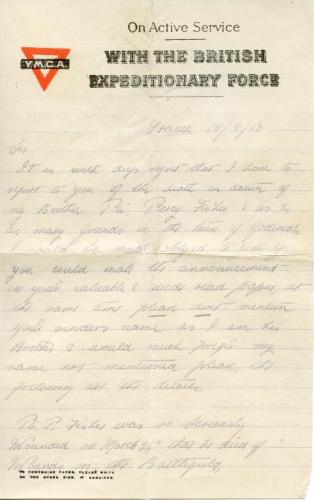 On Active Service
WITH THE BRITISH
EXPEDITIONARY FORCE
Y.M.C.A.
France
Sir
It is with deep regret that I have to
report to you of the death in action of
my Brother Pte. Percy Fisher & as he
as many friends in the town of
I would be much obliged to you if
you could make the announcement
in your valuable & wide read paper at
the same time please dont mention
your senders name as I am his
Brother & would much prefer my
name not mentioned please the
following are the details,
Pte. P. Fisher was so seriously
Wounded on March 24th that he died of
Wounds on the Battlefield
TO ECONOMISE PAPER, PLEASE WRITE
ON THE OTHER SIDE, IF REQUIRED.